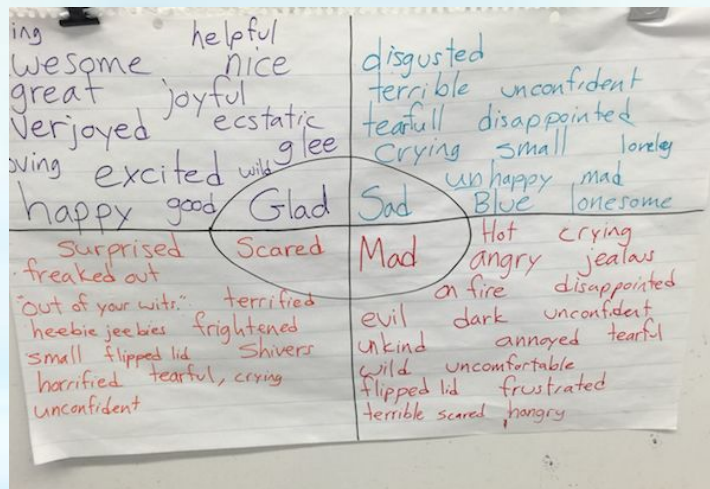 ing helpful
wesome nice
great joyful
verjoyed ecstatic
oving excited wild glee
happy good Glad
disgusted
terrible unconfident
tearfull disappointed
crying small lonely
unhappy mad
Sad Blue lonesome
Surprised Scared
freaked out
"out of your wits." terrified
heebie jeebies frightened
small flipped lid Shivers
horrified tearful, crying
unconfident
Mad Hot crying
angry jealous
on fire disappointed
evil dark unconfident
unkind annoyed tearful
wild uncomfortable
flipped lid frustrated
terrible scared hangry